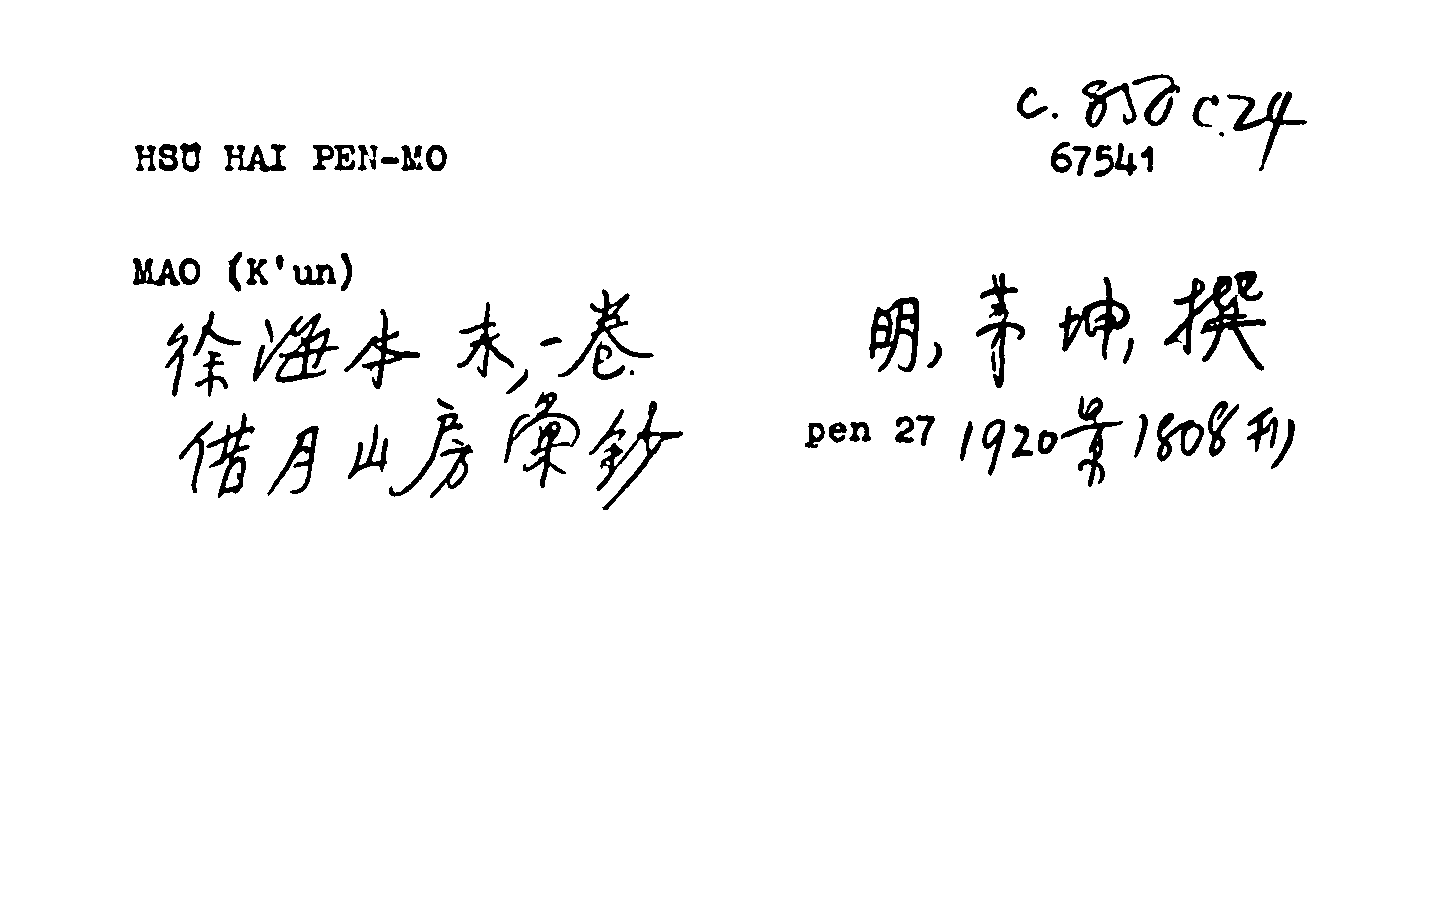 C. 858 c.24
HSÜ HAI PEN-MO
67541
MAO (K'un)
徐海本末,一卷 明,茅坤,撰
借月山房彙鈔 pen 27 1920景1808刊